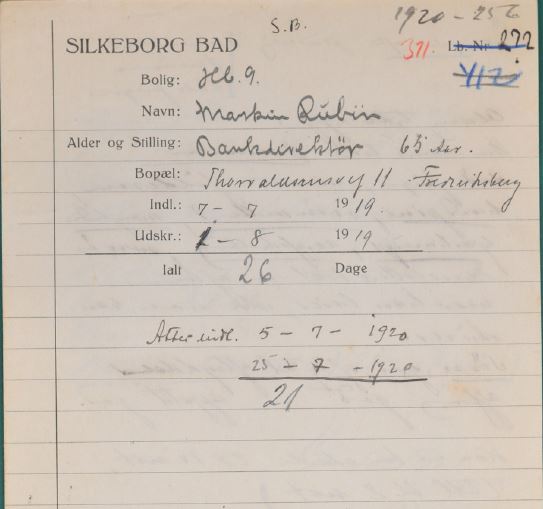 S.B.
1920 - 256
SILKEBORG BAD
371. Lb. Nr. 272
Bolig: Hb. 9.
Navn: Markus Rubin
Alder og Stilling: Bankdirektør 65 Aar.
Bopæl: Thorvaldsensvej 11 Fredriksberg
Indl.: 7 - 7 1919.
Udskr.: 1 - 8 1919
Ialt 26 Dage
Atter indl. 5 - 7 - 1920
25 - 7 - 1920
21